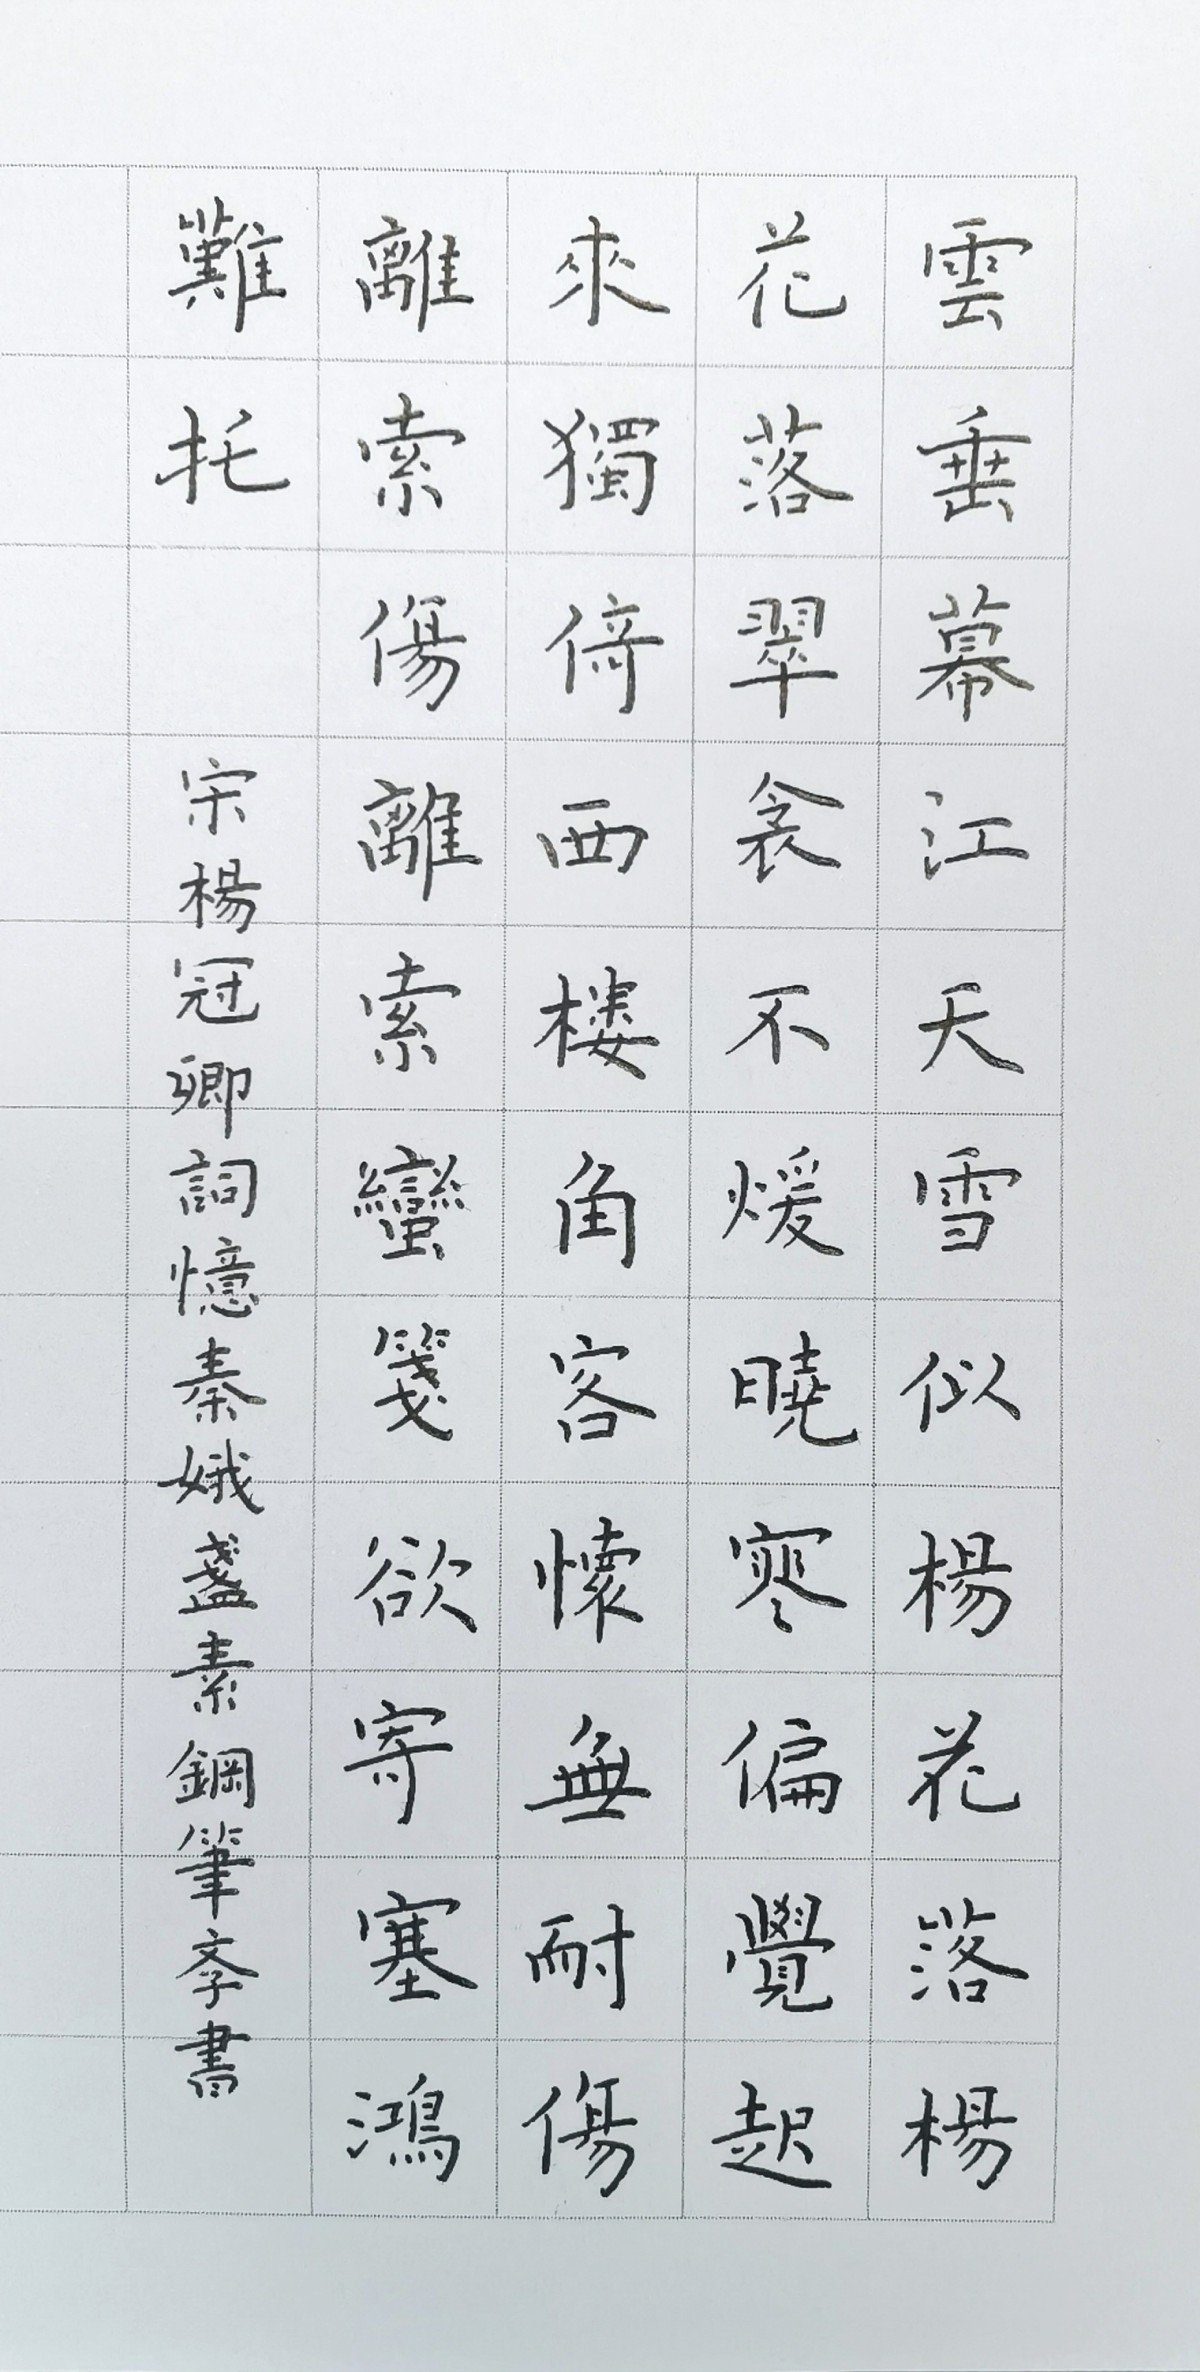 雲垂幕江天雪似楊花落楊
花落翠衾不煖曉寒偏覺起
來獨倚西樓角客懷無耐傷
離索傷離索蠻箋欲寄塞鴻
難托
宋楊冠卿詞憶秦娥盞素鋼筆李書